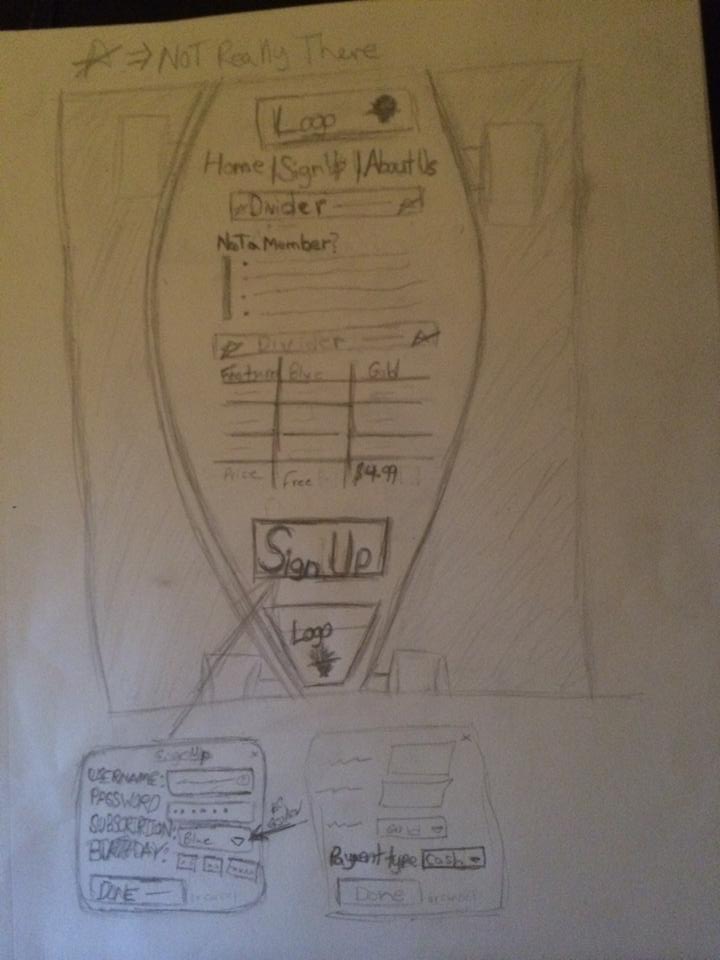 ⇒ NOT Really There
Logo
Home | Sign Up | About Us
Divider
Not a Member?
Divider
Feature Blue Gold
Price Free $4.99
Sign Up
Logo
Sign Up x
USERNAME:
PASSWORD
SUBSCRIPTION: Blue
BIRTHDAY:
DONE
or cancel
x
Gold
Payment type Cash
Done
or cancel